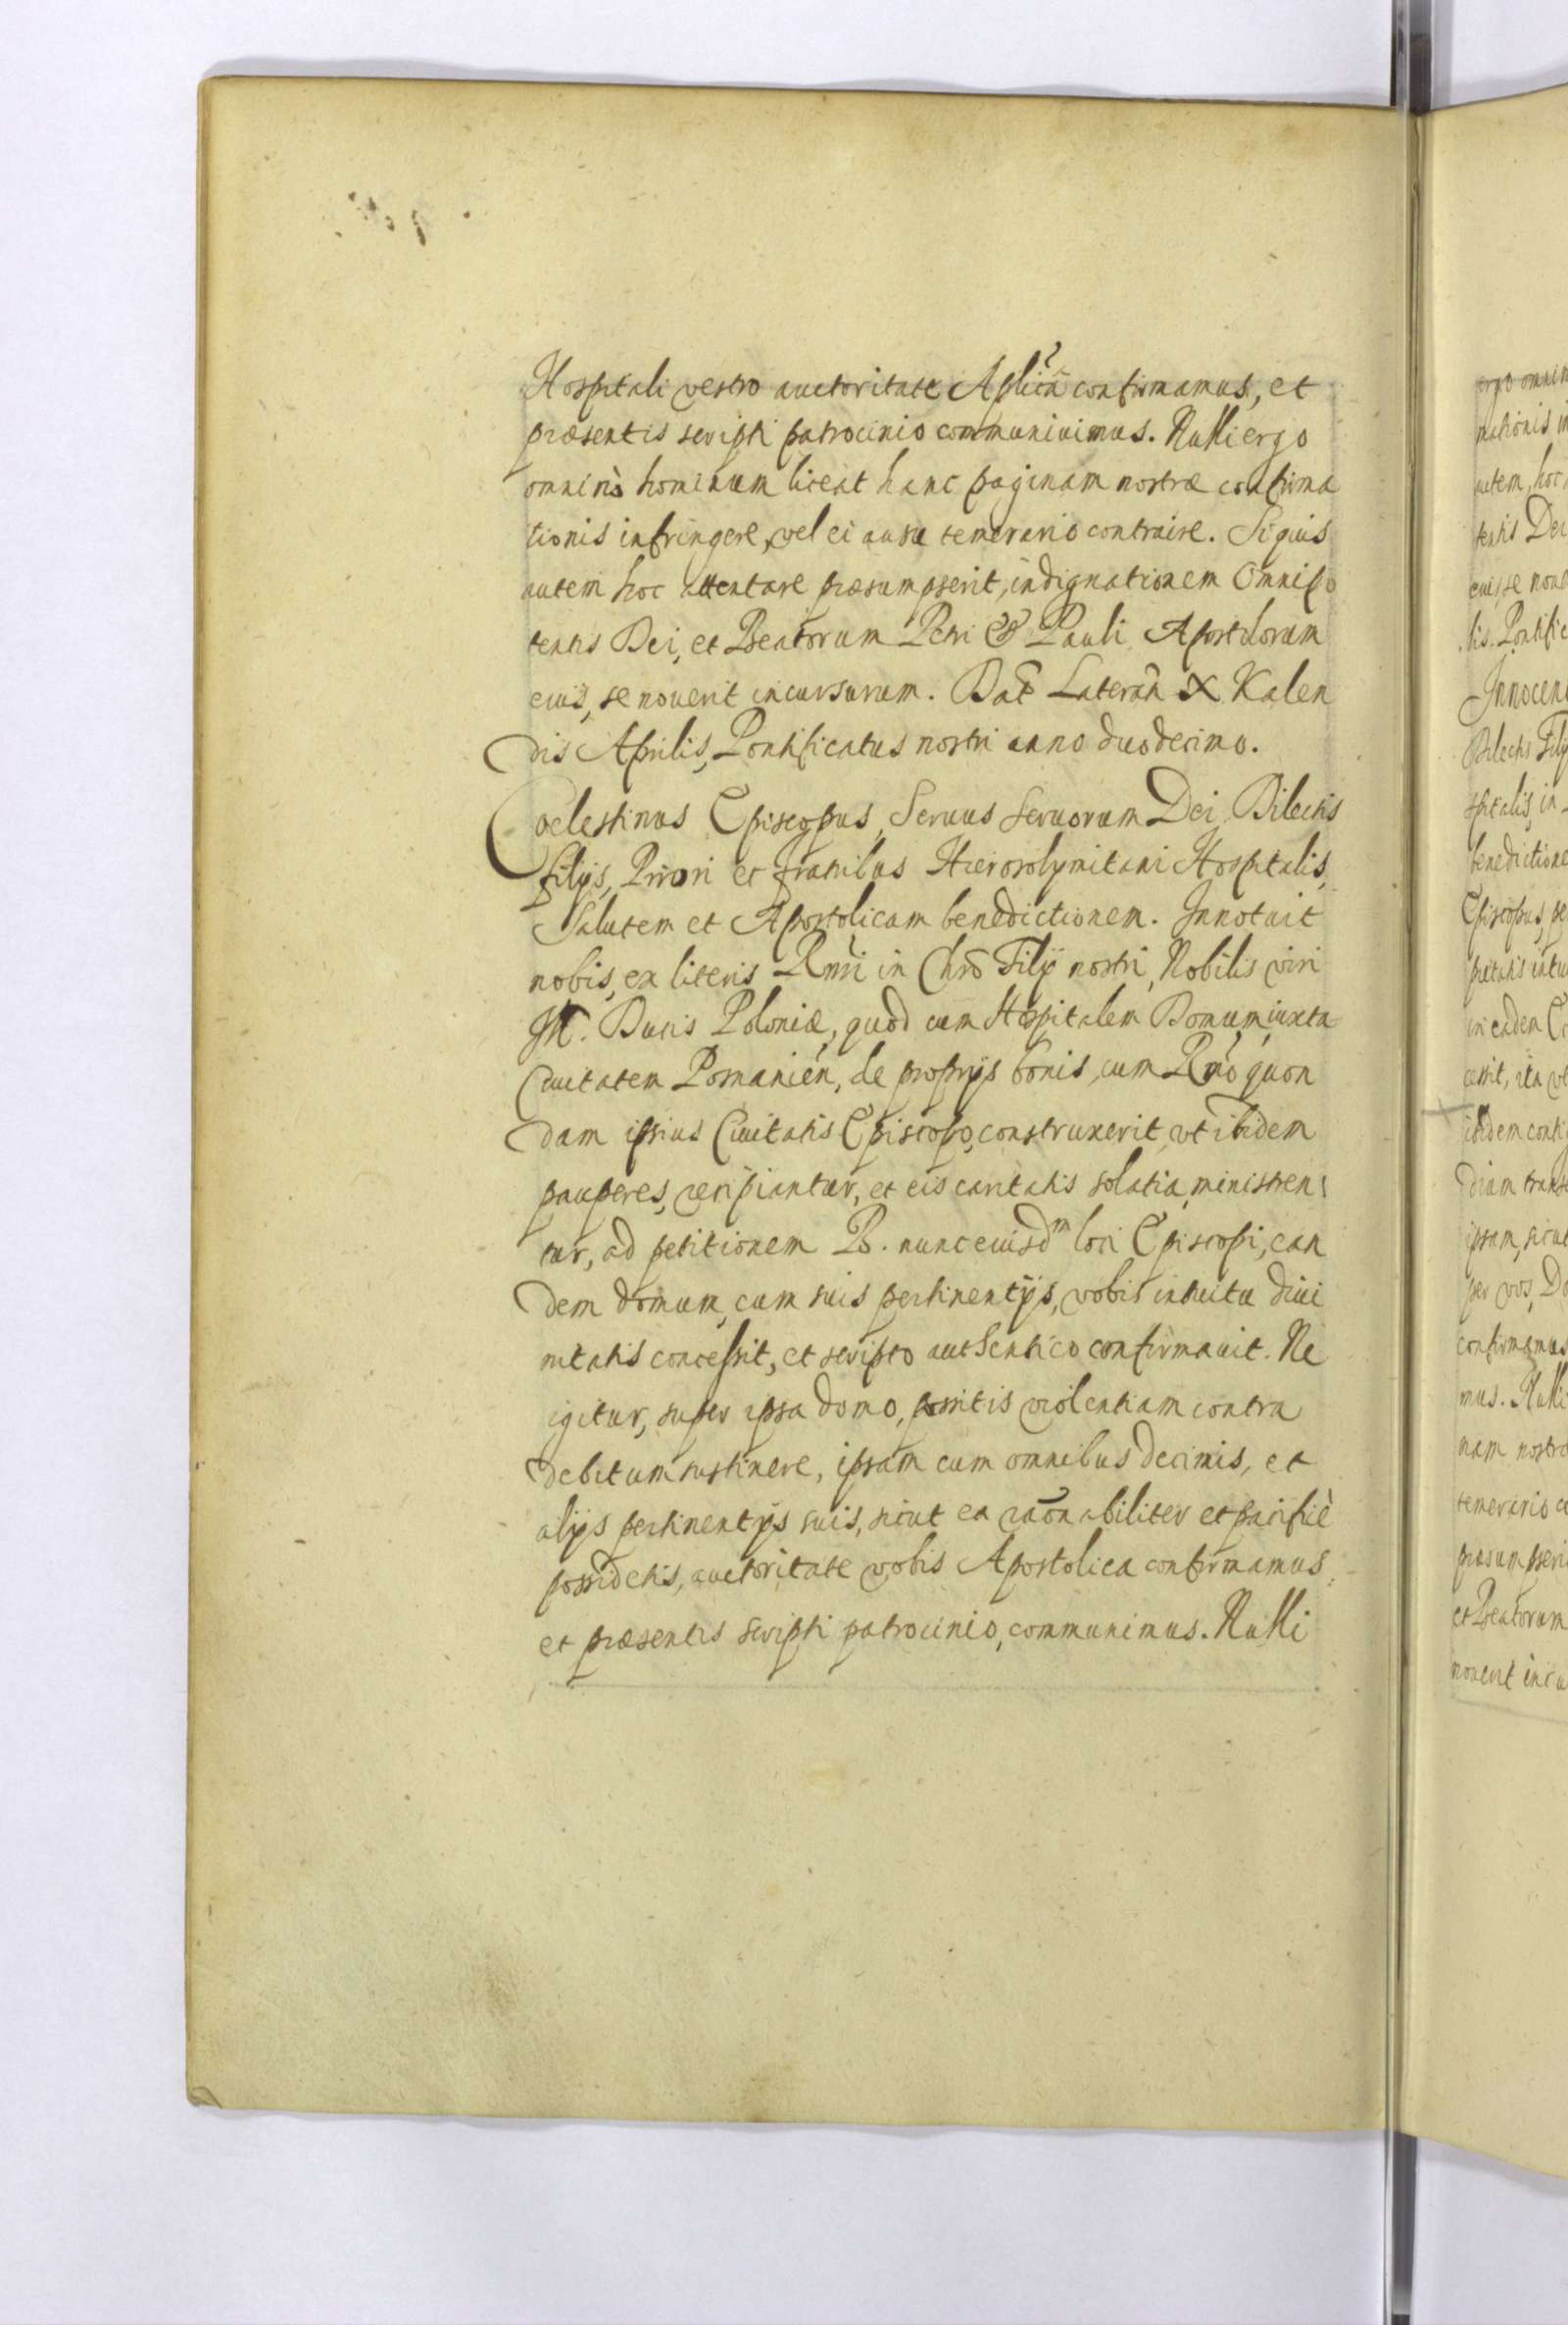 Hospitali vestro auctoritate Aplicã confirmamus, et
præsentis scripti patrocinio communiuimus. Nulli ergo
omninò hominum liceat hanc paginam nostræ confirma
tionis infringere, vel ei ausu temerario contraire. Si quis
autem hoc attentare præsumpserit, indignationem Omnipo
tentis Dei, et Beatorum Petri & Pauli Apostolorum
eius, se nouerit incursurum. Dat̃ Laterañ X Kalen
dis Aprilis, Pontificatus nostri anno duodecimo.
Coelestinus Episcopus, Seruus Seruorum Dei, Dilectis
filijs, Priori et fratribus Hierosolymitani Hospitalis,
Salutem et Apostolicam benedictionem. Innotuit
nobis, ex literis Rmi in Chrõ Filij nostri, Nobilis viri
M. Ducis Poloniæ, quod cum Hospitalem Domum, iuxta
Ciuitatem Posnanień, de proprijs bonis, cum Rmo quon
dam ipsius Ciuitatis Episcopo, construxerit, vt ibidem
pauperes, recipiantur, et eis caritatis solatia, ministren
tur, ad petitionem B. nunc eiusdm loci Episcopi, ean
dem domum, cum suis pertinentijs, vobis intuitu diui
nitatis concessit, et scripto authentico confirmauit. Ne
igitur, super ipsa domo, possitis violentiam contra
debitum sustinere, ipsam cum omnibus decimis, et
alijs pertinentijs suis, sicut ea raõnabiliter et pacificè
possidetis, auctoritate vobis Apostolica confirmamus,
et præsentis scripti patrocinio, communimus. Nulli
ergo omnin
mationis in
autem, hoc
tentis Dei
eius, se noue
lis. Pontific
Innocent
Dilectis Filij
spitalis, in
benedictione
Episcopus, pe
pietatis intu
in eadem C
cessit, ita vt
ibidem conti
diam transe
ipsam, sicut
per vos, Do
confirmamus
mus. Nulli
nam nostræ
temerario co
præsumpseri
et Beatorum
nouerit incu